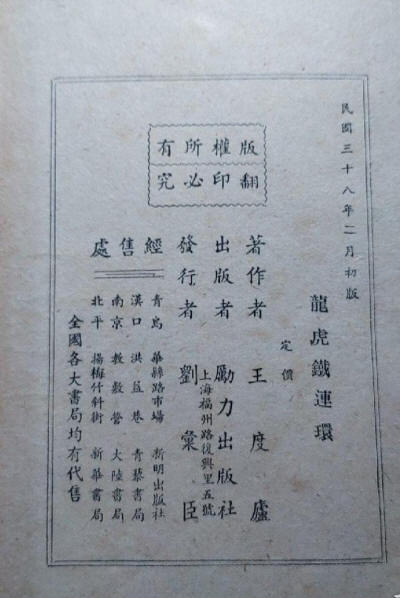 民國三十八年二月初版
龍虎鐵連環
定價
版權所有
翻印必究
著作者 王度廬
出版者 勵力出版社
上海福州路復興里五號
發行者 劉彙臣
經售處
青島 華縣路市場 新明出版社
漢口 洪益巷 青藜書局
南京 教敷營 大陸書局
北平 楊梅竹斜街 新華書局
全國各大書局均有代售